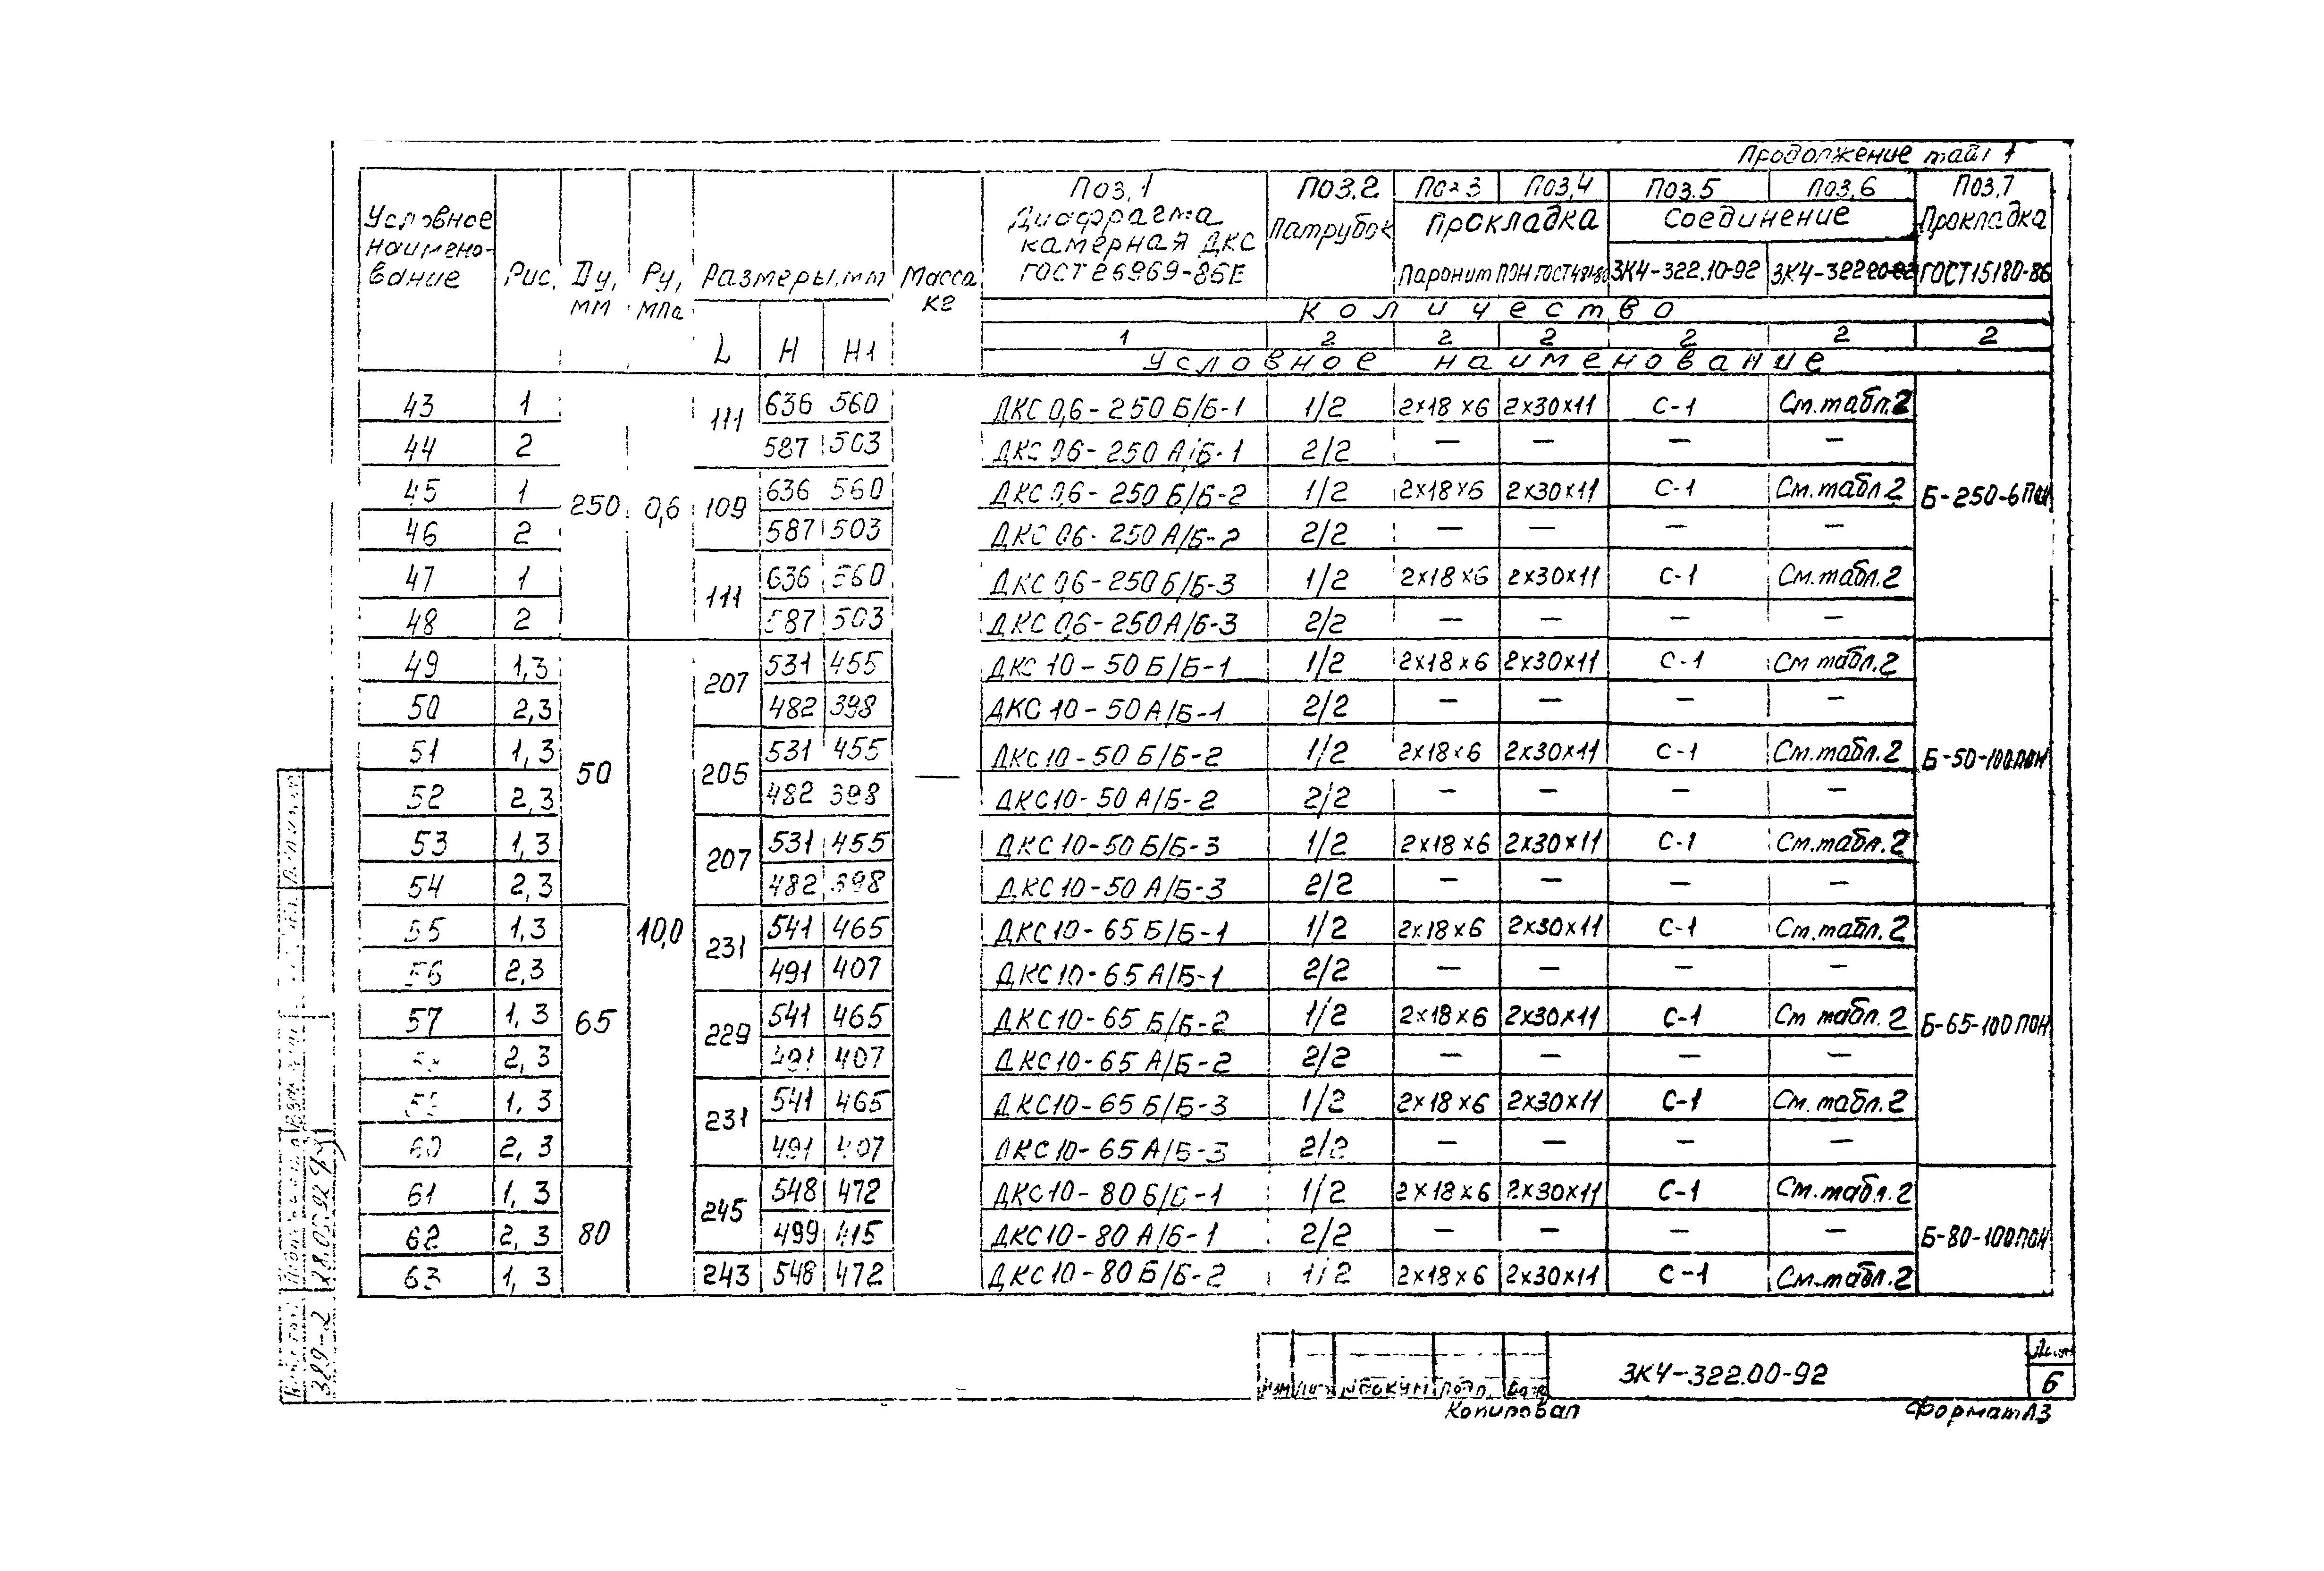 Продолжение табл 1
Условное наимено-вание Рис. Ду, мм Ру, мПа Размеры, мм Масса кг
L H H1
Поз.1 Поз.2 Поз 3 Поз.4 Поз.5 Поз.6 Поз.7
Диафрагма камерная ДКС ГОСТ 26969-86Е Патрубок Прокладка Соединение Прокладка
Паронит ПОН ГОСТ 481-80 ЗК4-322.10-92 ЗК4-322 20-92 ГОСТ 15180-86
Количество
1 2 2 2 2 2 2
Условное наименование
43 1 250 0,6 111 636 560 ДКС 0,6-250 Б/Б-1 1/2 2×18×6 2×30×11 С-1 См.табл.2 Б-250-6ПОН
44 2 587 503 ДКС 0,6-250 А/Б-1 2/2 — — — —
45 1 109 636 560 ДКС 0,6-250 Б/Б-2 1/2 2×18×6 2×30×11 С-1 См.табл.2
46 2 587 503 ДКС 0,6-250 А/Б-2 2/2 — — — —
47 1 111 636 560 ДКС 0,6-250 Б/Б-3 1/2 2×18×6 2×30×11 С-1 См.табл.2
48 2 587 503 ДКС 0,6-250 А/Б-3 2/2 — — — —
49 1,3 50 10,0 207 531 455 — ДКС 10-50 Б/Б-1 1/2 2×18×6 2×30×11 С-1 См табл.2 Б-50-100ПОН
50 2,3 482 398 ДКС 10-50 А/Б-1 2/2 — — — —
51 1,3 205 531 455 ДКС 10-50 Б/Б-2 1/2 2×18×6 2×30×11 С-1 См.табл.2
52 2,3 482 398 ДКС 10-50 А/Б-2 2/2 — — — —
53 1,3 207 531 455 ДКС 10-50 Б/Б-3 1/2 2×18×6 2×30×11 С-1 См.табл.2
54 2,3 482 398 ДКС 10-50 А/Б-3 2/2 — — — —
55 1,3 65 231 541 465 ДКС 10-65 Б/Б-1 1/2 2×18×6 2×30×11 С-1 См.табл.2 Б-65-100ПОН
56 2,3 491 407 ДКС 10-65 А/Б-1 2/2 — — — —
57 1,3 229 541 465 ДКС 10-65 Б/Б-2 1/2 2×18×6 2×30×11 С-1 См табл.2
58 2,3 491 407 ДКС 10-65 А/Б-2 2/2 — — — —
59 1,3 231 541 465 ДКС 10-65 Б/Б-3 1/2 2×18×6 2×30×11 С-1 См.табл.2
60 2,3 491 407 ДКС 10-65 А/Б-3 2/2 — — — —
61 1,3 80 245 548 472 ДКС 10-80 Б/Б-1 1/2 2×18×6 2×30×11 С-1 См.табл.2 Б-80-100ПОН
62 2,3 499 415 ДКС 10-80 А/Б-1 2/2 — — — —
63 1,3 243 548 472 ДКС 10-80 Б/Б-2 1/2 2×18×6 2×30×11 С-1 См.табл.2
389-2
ЗК4-322.00-92
Лист
6
Изм Лист № докум Подп. Дата
Копировал Формат А3